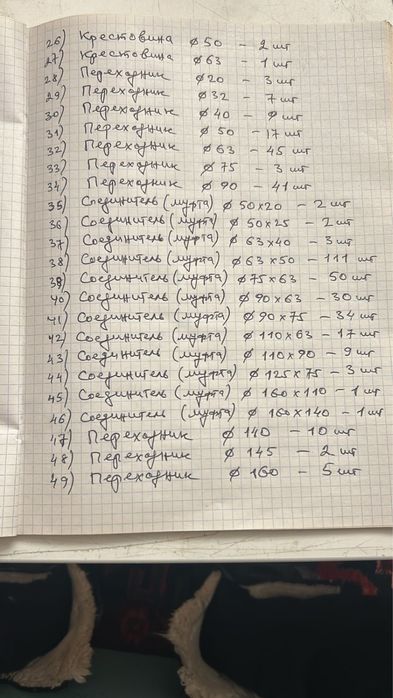 26) Крестовина ⌀50 – 2 шт
27) Крестовина ⌀63 – 1 шт
28) Переходник ⌀20 – 3 шт
29) Переходник ⌀32 – 7 шт
30) Переходник ⌀40 – шт
31) Переходник ⌀50 – 17 шт
32) Переходник ⌀63 – 45 шт
33) Переходник ⌀75 – 3 шт
34) Переходник ⌀90 – 41 шт
35) Соединитель (муфта) ⌀50x20 – 2 шт
36) Соединитель (муфта) ⌀50x25 – 2 шт
37) Соединитель (муфта) ⌀63x40 – 3 шт
38) Соединитель (муфта) ⌀63x50 – 111 шт
39) Соединитель (муфта) ⌀75x63 – 50 шт
40) Соединитель (муфта) ⌀90x63 – 30 шт
41) Соединитель (муфта) ⌀90x75 – 34 шт
42) Соединитель (муфта) ⌀110x63 – 17 шт
43) Соединитель (муфта) ⌀110x90 – 9 шт
44) Соединитель (муфта) ⌀125x75 – 3 шт
45) Соединитель (муфта) ⌀160x110 – 1 шт
46) Соединитель (муфта) ⌀160x140 – 1 шт
47) Переходник ⌀140 – 10 шт
48) Переходник ⌀145 – 2 шт
49) Переходник ⌀160 – 5 шт